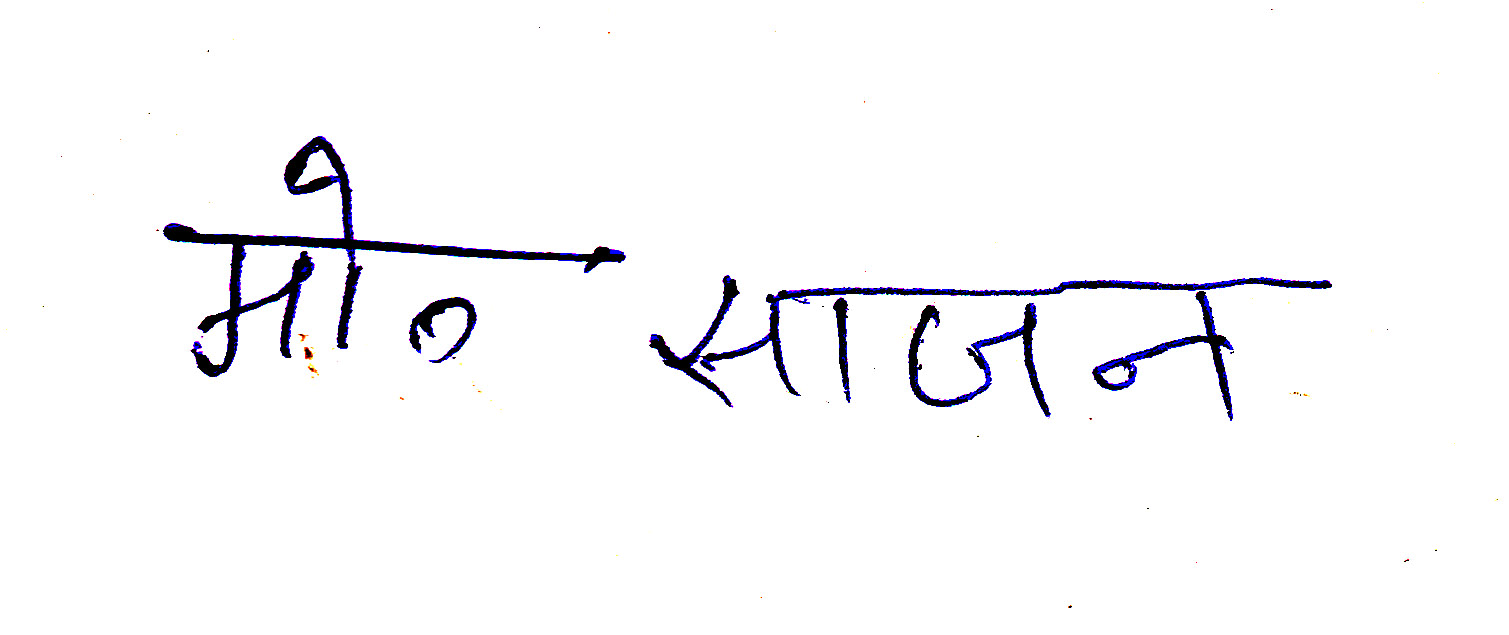 मो० साजन